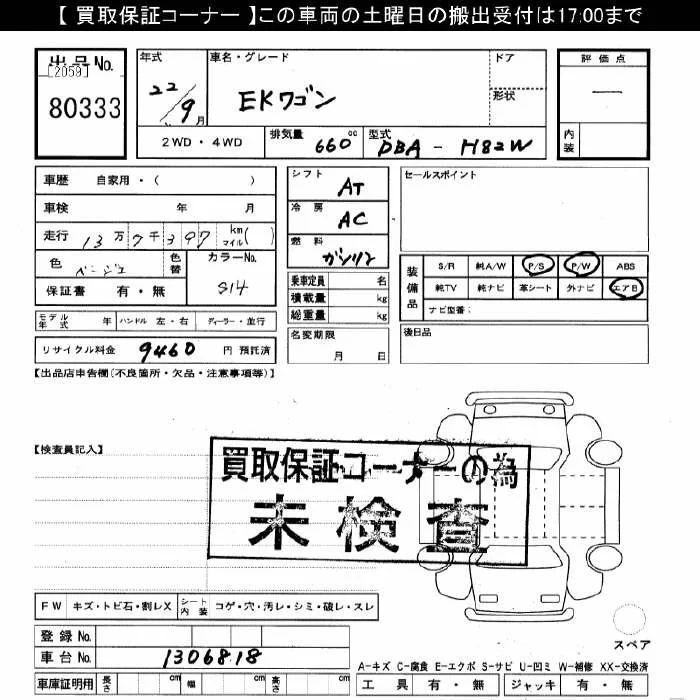 【 買取保証コーナー 】この車両の土曜日の搬出受付は17:00まで
出品No.
[2059]
80333
年式
22/9月
車名・グレード
EKワゴン
ドア
形状
評価点
一
内装
2WD・4WD
排気量
660cc
型式
DBA-H82W
車歴 自家用・( )
車検 年 月
走行 13万7千397 km マイル( )
色 ベージュ
色替
カラーNo.
S14
保証書 有・無
シフト
AT
冷房
AC
燃料
ガソリン
乗車定員 名
積載量 kg
総重量 kg
セールスポイント
装備品
S/R 純A/W P/S P/W ABS
純TV 純ナビ 革シート 外ナビ エアB
ナビ型番:
モデル年式 年 ハンドル 左・右 ディーラー・並行
名変期限
月 日
後日品
リサイクル料金 9460 円 預託済
【出品店申告欄(不良箇所・欠品・注意事項等)】
【検査員記入】
買取保証コーナーの為
未検査
FW キズ・トビ石・割レX シート内装 コゲ・穴・汚レ・シミ・破レ・スレ
登録No.
車台No. 1306818
スペア
A-キズ C-腐食 E-エクボ S-サビ U-凹ミ W-補修 XX-交換済
車庫証明用 長さ cm 幅 cm 高さ cm
工具 有・無 ジャッキ 有・無